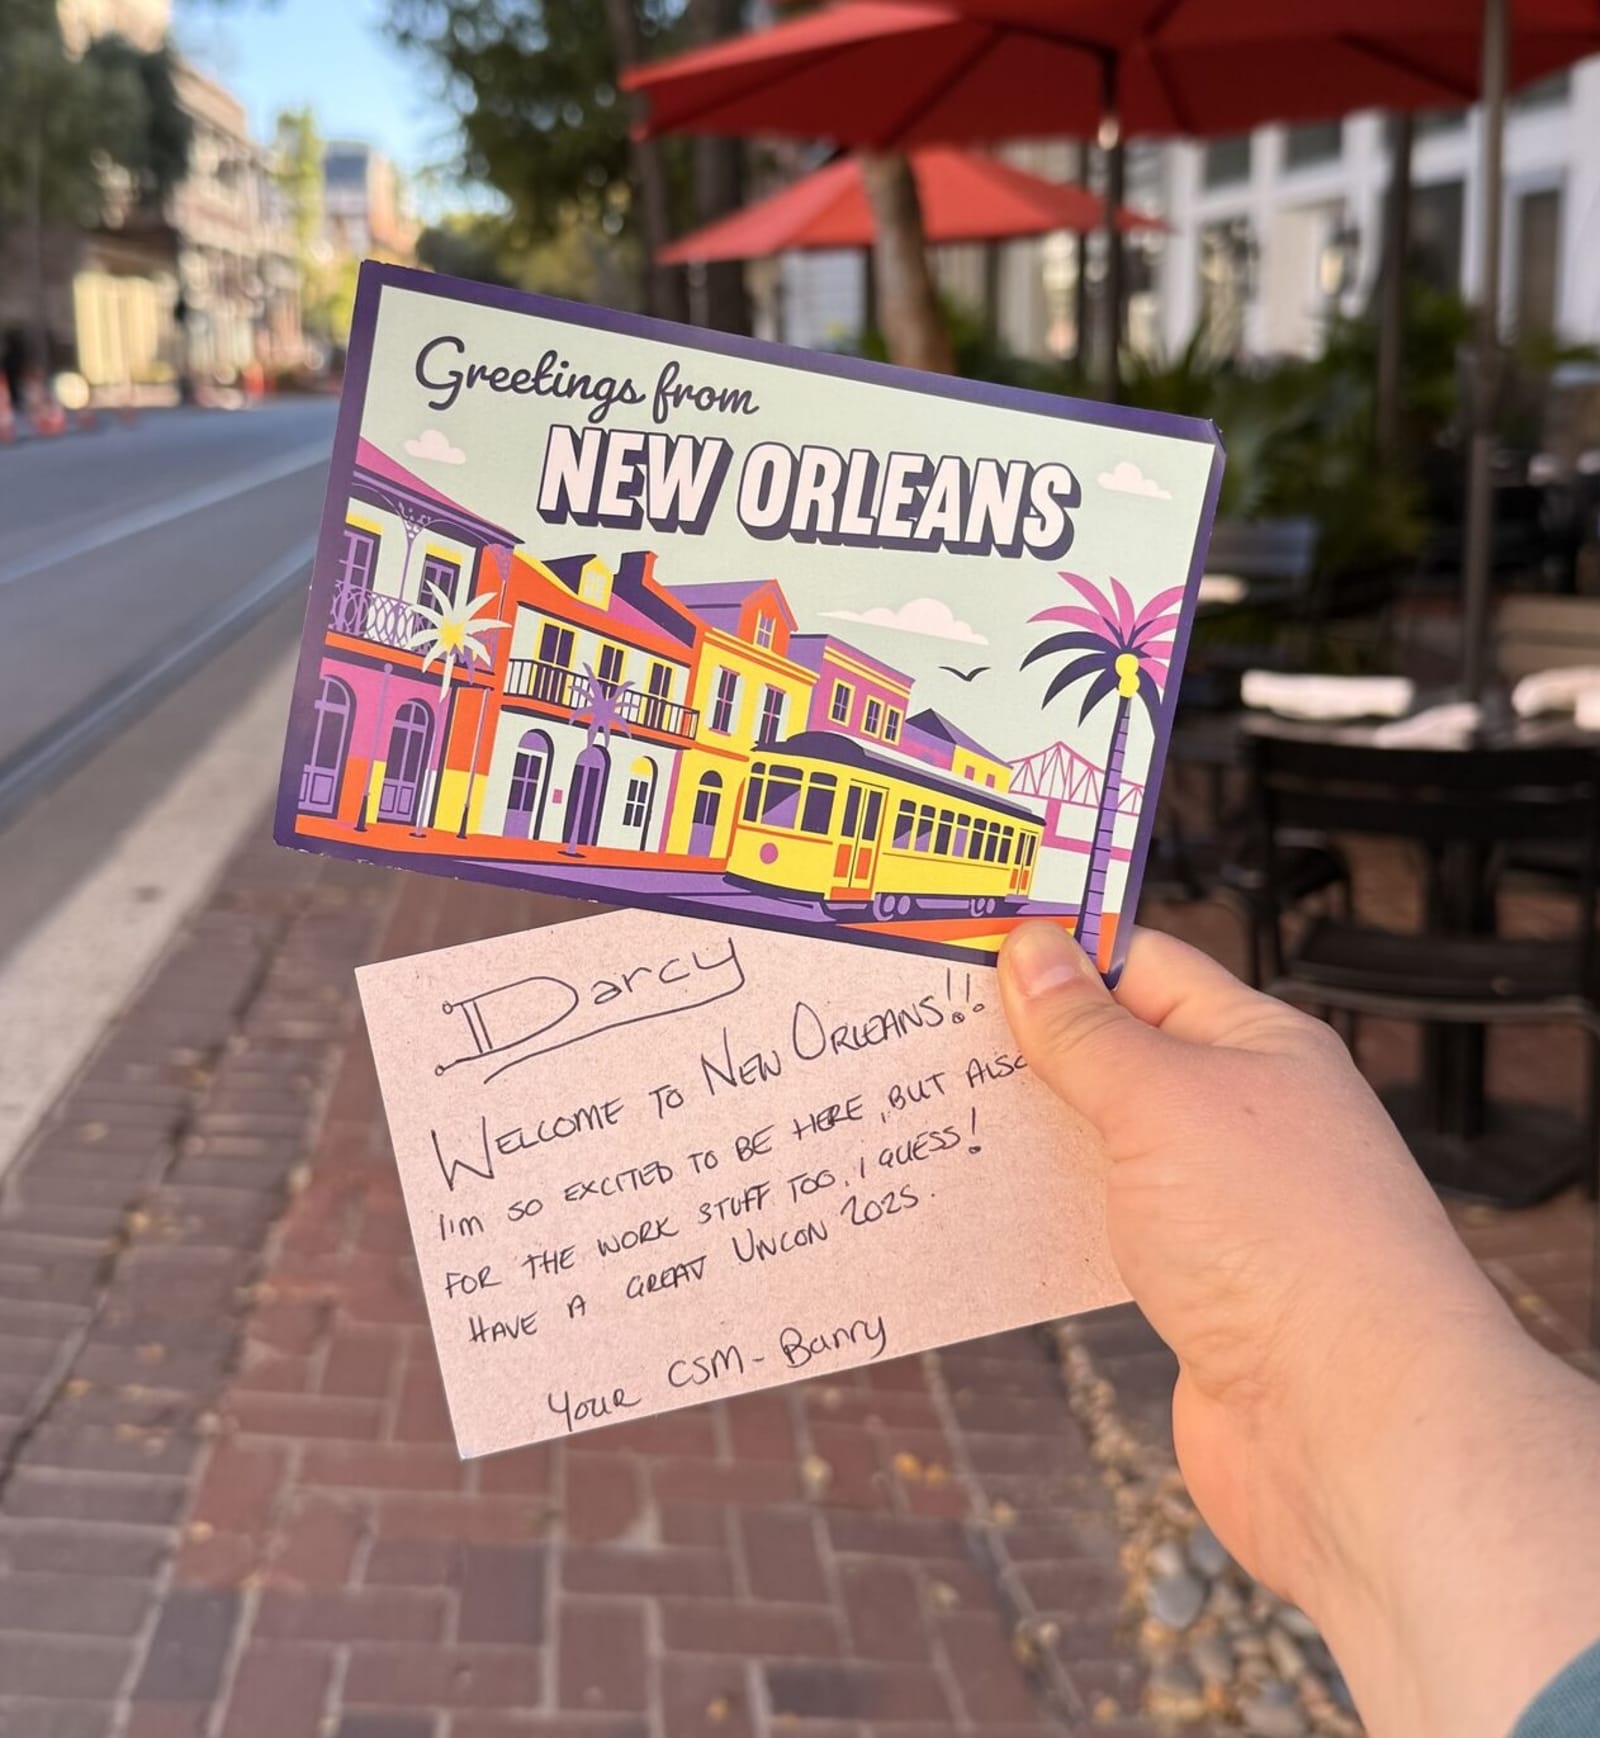 Greetings from
NEW ORLEANS
Darcy
WELCOME TO NEW ORLEANS!!
I'M SO EXCITED TO BE HERE, BUT ALSO
FOR THE WORK STUFF TOO, I GUESS!
HAVE A GREAT UNCON 2025.
YOUR CSM - Barry